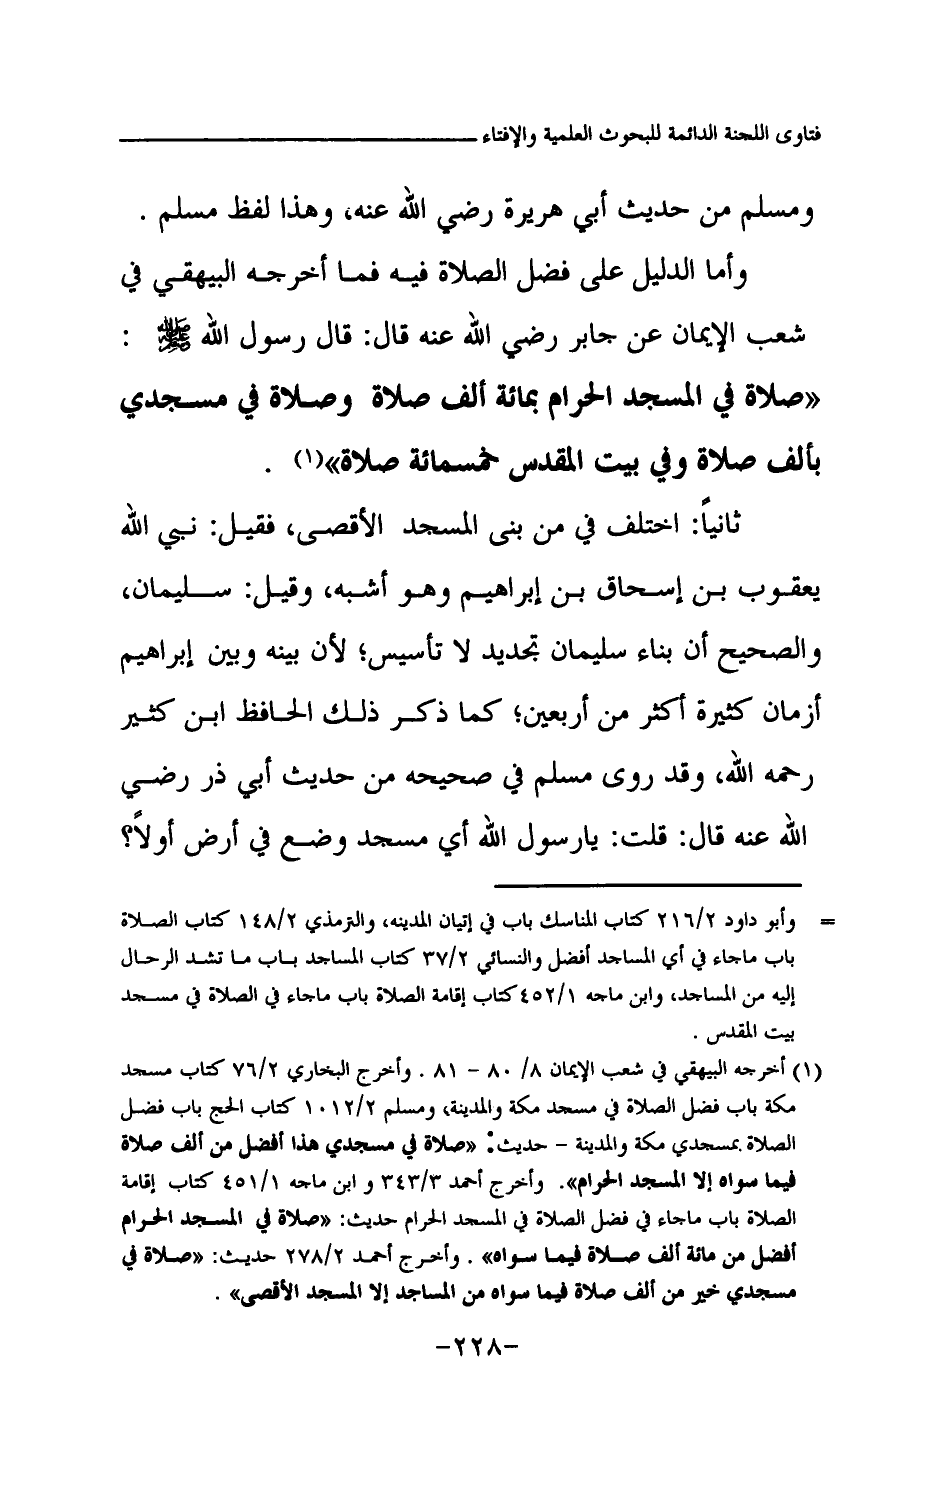 فتاوى اللجنة الدائمة للبحوث العلمية والإفتاء
ومسلم من حديث أبي هريرة رضي الله عنه، وهذا لفظ مسلم .
وأما الدليل على فضل الصلاة فيه فما أخرجه البيهقي في
شعب الإيمان عن جابر رضي الله عنه قال: قال رسول الله ﷺ :
«صلاة في المسجد الحرام بمائة ألف صلاة وصلاة في مسجدي
بألف صلاة وفي بيت المقدس خمسمائة صلاة»(١) .
ثانياً: اختلف في من بنى المسجد الأقصى، فقيل: نبي الله
يعقوب بن إسحاق بن إبراهيم وهو أشبه، وقيل: سليمان،
والصحيح أن بناء سليمان تجديد لا تأسيس؛ لأن بينه وبين إبراهيم
أزمان كثيرة أكثر من أربعين؛ كما ذكر ذلك الحافظ ابن كثير
رحمه الله، وقد روى مسلم في صحيحه من حديث أبي ذر رضي
الله عنه قال: قلت: يارسول الله أي مسجد وضع في أرض أولاً؟
= وأبو داود ٢١٦/٢ كتاب المناسك باب في إتيان المدينه، والترمذي ١٤٨/٢ كتاب الصلاة
باب ماجاء في أي المساجد أفضل والنسائي ٣٧/٢ كتاب المساجد باب ما تشد الرحال
إليه من المساجد، وابن ماجه ٤٥٢/١كتاب إقامة الصلاة باب ماجاء في الصلاة في مسجد
بيت المقدس .
(١) أخرجه البيهقي في شعب الإيمان ٨/ ٨٠ – ٨١ . وأخرج البخاري ٧٦/٢ كتاب مسجد
مكة باب فضل الصلاة في مسجد مكة والمدينة، ومسلم ١٠١٢/٢ كتاب الحج باب فضل
الصلاة بمسجدي مكة والمدينة – حديث: «صلاة في مسجدي هذا أفضل من ألف صلاة
فيما سواه إلا المسجد الحرام». وأخرج أحمد ٣٤٣/٣ و ابن ماجه ٤٥١/١ كتاب إقامة
الصلاة باب ماجاء في فضل الصلاة في المسجد الحرام حديث: «صلاة في المسجد الحرام
أفضل من مائة ألف صلاة فيما سواه» . وأخرج أحمد ٢٧٨/٢ حديث: «صلاة في
مسجدي خير من ألف صلاة فيما سواه من المساجد إلا المسجد الأقصى» .
–٢٢٨–